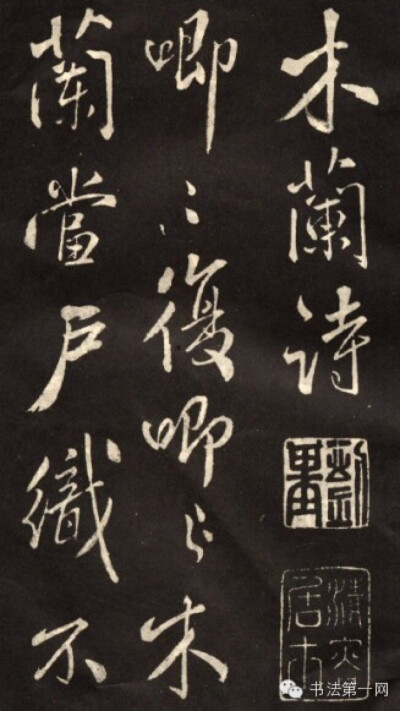 木蘭詩
唧〻復唧〻木
蘭當戶織不
书法第一网